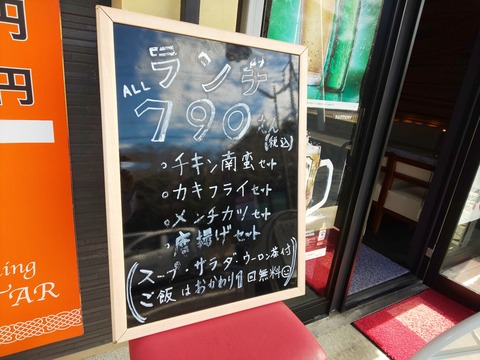 ランチ
ALL 790えん(税込)
・チキン南蛮セット
・カキフライセット
・メンチカツセット
・唐揚げセット
(スープ・サラダ・ウーロン茶付
ご飯はおかわり1回無料)
円
円
ing
TAR